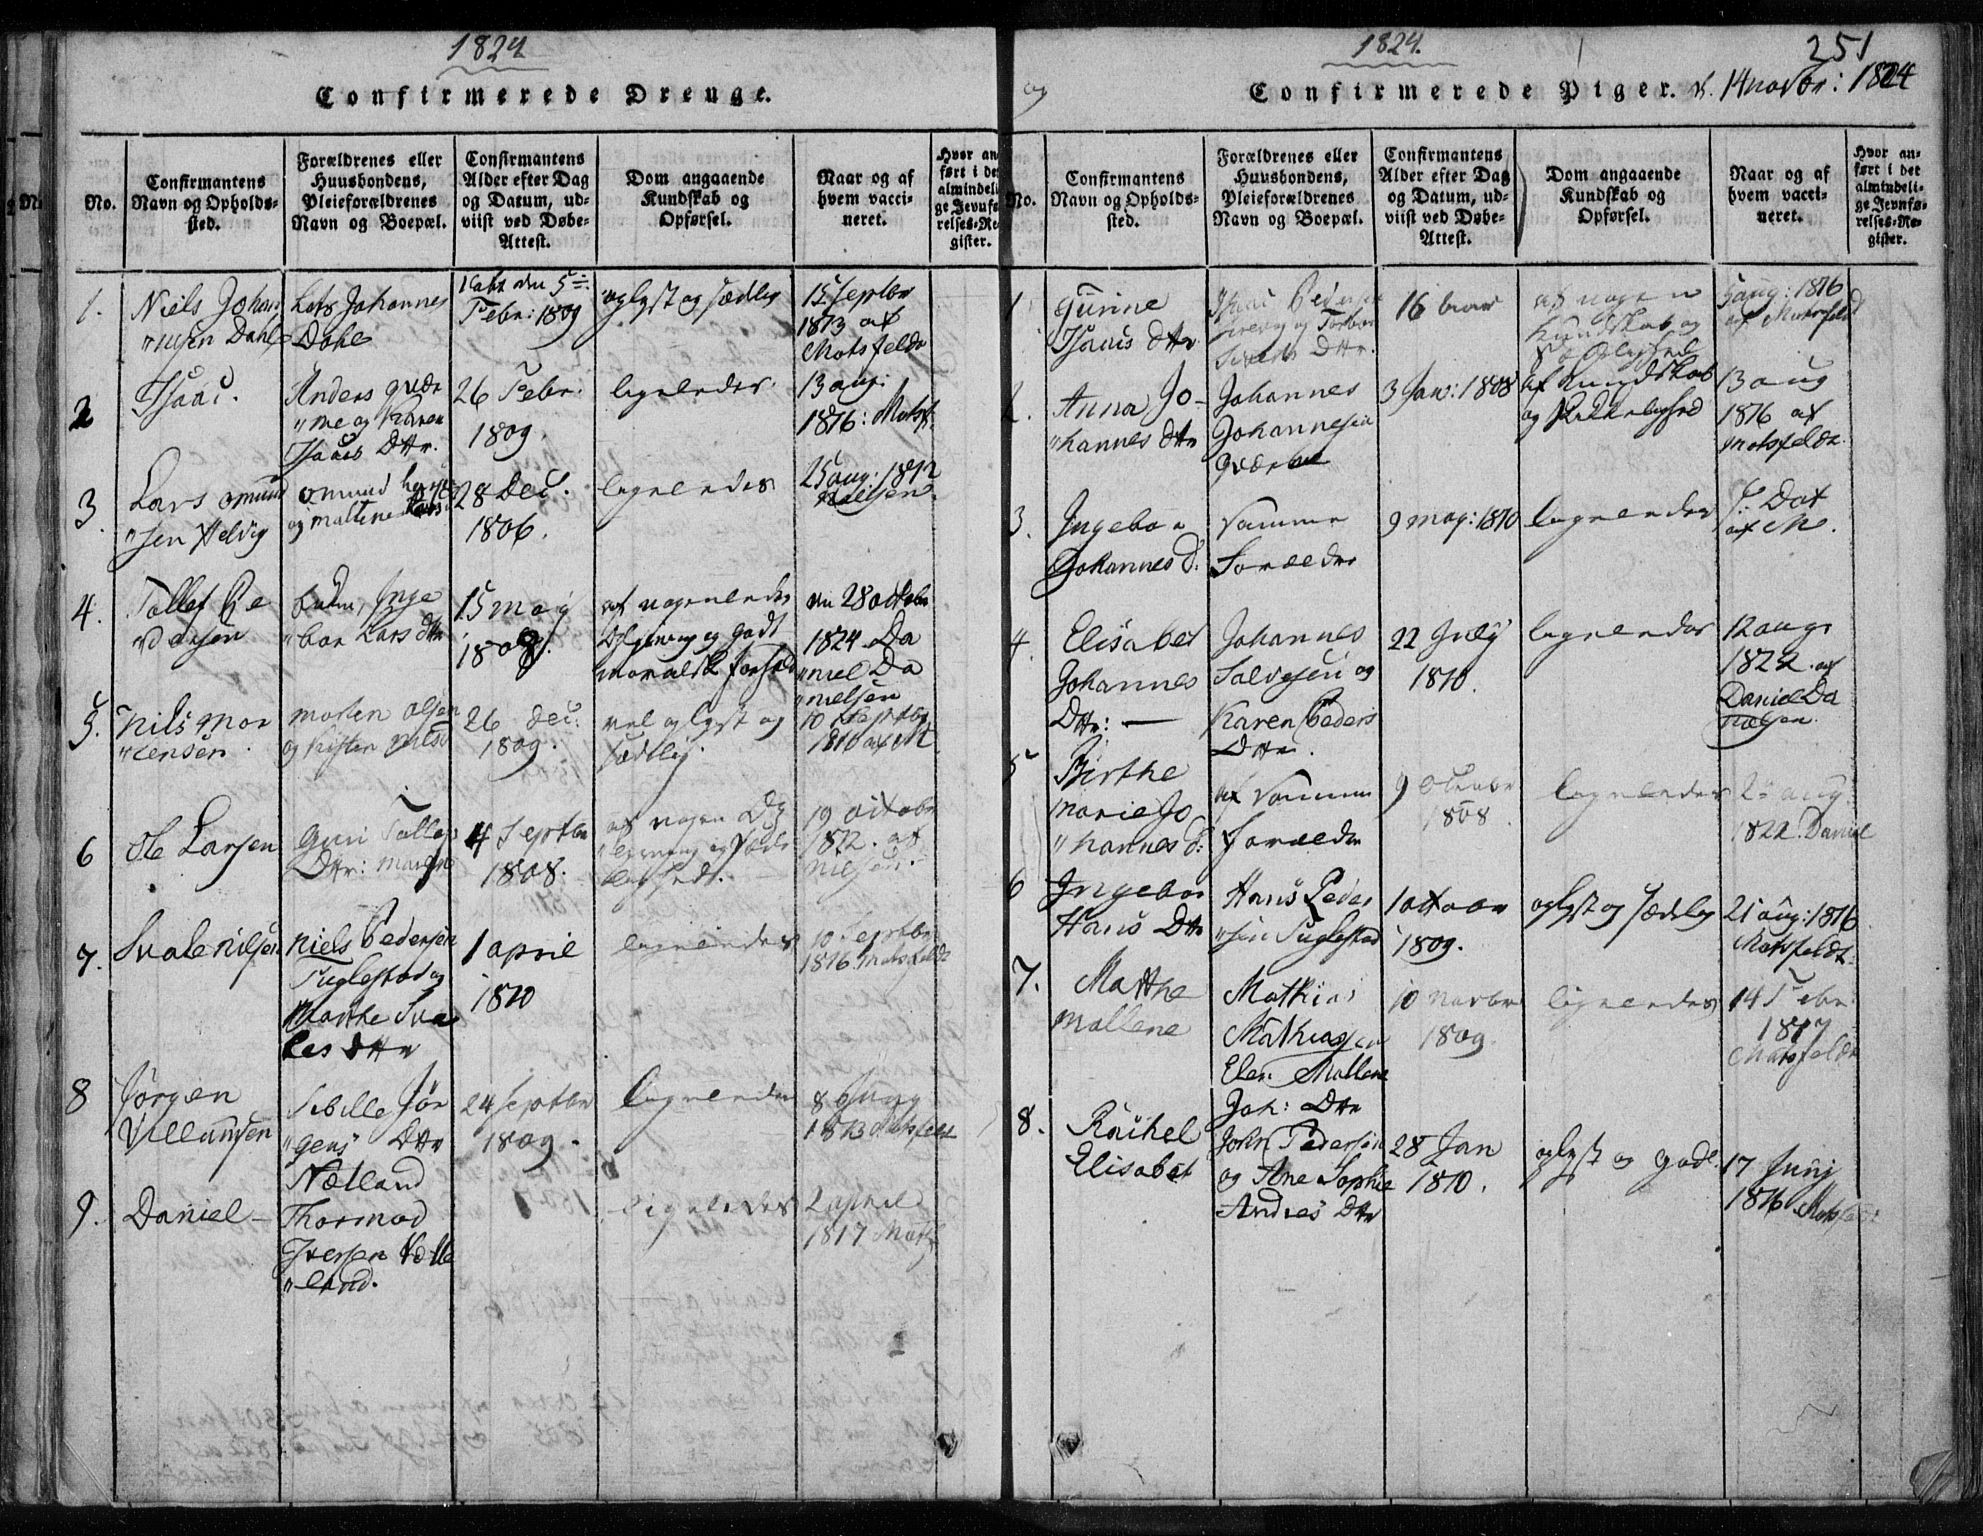 1824
Confirmerede Drenge.
No.
Confirmantens
Navn og Opholds-
sted.
Forældrenes eller
Huusbondens,
Pleieforældrenes
Navn og Boepæl.
Confirmantens
Alder efter Dag
og Datum, ud-
viist ved Døbe-
Attest.
Dom angaaende
Kundskab og
Opførsel.
Naar og af
hvem vacci-
neret.
Hvor an
ført i de
almindeli
ge Jevnfø
relses-Re
gister.
1.
Niels Johan
"nesen Dahle
Lars Johannes
Dahle
den 5te
Febr: 1809
oplyst og sædelig
15 Septbr
1813 af
Motsfeldt
2
Isaac.
Anders qvær
"me og Karen
Isaacs Dttr.
26 Febr:
1809.
ligeledes.
13 aug:
1816: Motsf.
3.
Lars omund
"sen Velvig
omund
og Maltene
28 Dec.
1806.
ligeledes
25 aug:
Nielsen.
4.
Tollef Pe
"dersen
Inge
"bor Lars dttr
15 may
1808.
af nogenledes
og godt
moralsk forhold
den 28 octobr
1824 Da
"niel Da
"nielsen
5.
Nils Mor
"tensen.
Morten Olsen
og Kirsten Nils
26 Dec:
1809.
vel oplyst og
sædelig.
10 Septbr
1816 af M
6
Ole Larsen
Guri Tollefs
Dttr:
4 Septbr
1808.
af nogen
19 octobr
1822. af
Nielsen.
7.
Svale Nilsen
Niels Pedersen
Fuglestad og
Marthe Sva
les Dttr
1 april
1810
ligeledes
10 Septbr
1816 Motsfeldt
8
Jørgen
Villumsen
Sibille Jør
"gens Dttr
Nætland
24 Septbr
1809.
ligeledes
8 Juny
1813 Motsfeldt
9.
Daniel -
Thormod
Iversen Nætte
"land.
ligeledes
2 april
1817 Motsf
og
1824.
251
Confirmerede Piger. d. 14 novbr: 1824
No.
Confirmantens
Navn og Opholds-
sted.
Forældrenes eller
Huusbondens,
Pleieforældrenes
Navn og Boepæl.
Confirmantens
Alder efter Dag
og Datum, ud-
viist ved Døbe-
Attest.
Dom angaaende
Kundskab og
Opførsel.
Naar og af
hvem vacci-
neret.
Hvor an-
ført i det
almindeli-
ge Jevnfø-
relses-Re-
gister.
1
Gunine
Isaacs dttr
Isaac Pedersen
og
Dttr.
16 aar
af nogen
Kundskab og
5 aug: 1816
af Motsfeldt
2.
Anna Jo-
"hannes dttr
Johannes
Johannesen
qværme
3 Jan: 1808
af Kundskab
og
13 aug
1816 af
Motsfeldt.
3.
Ingebor
Johannes d.
Samme
Foræeldre
9 may: 1810
ligeledes
J: Dat
af M.
4.
Elisabet
Johannes
Dttr: -
Johannes
Salvesen og
Karen Peders
Dttr.
22 July
1810.
ligeledes
12 aug:
1822. af
Daniel Da
nielsen.
5
Birthe
Marie Jo
"hannes d:
af Samme
foræeldre
9 Octobr
1808.
ligeledes
aug
1822. Daniel
6
Ingebor
Hans Dttr
Hans Peder
"sen Fuglestad
1 octobr
1809.
oplyst og sædelig
21 aug: 1816
Motsfeldt.
7.
Marthe
Mallene
Mathias
Mathiasen
Elen Mallene
Joh: Dttr
10 Novbr
1809
ligeledes
14 Febr
1817
Motsfeldt
8.
Rachel
Elisabet
John Pedersen
og Ane Sophie
Andres Dttr
28 Jan
1810.
oplyst og god.
17 Junj
1816 Motsfeldt